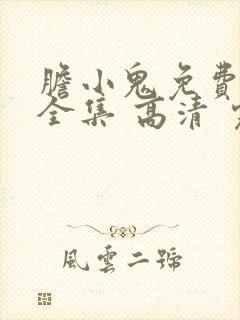 膽小鬼免費
全集 高清
風雲二號